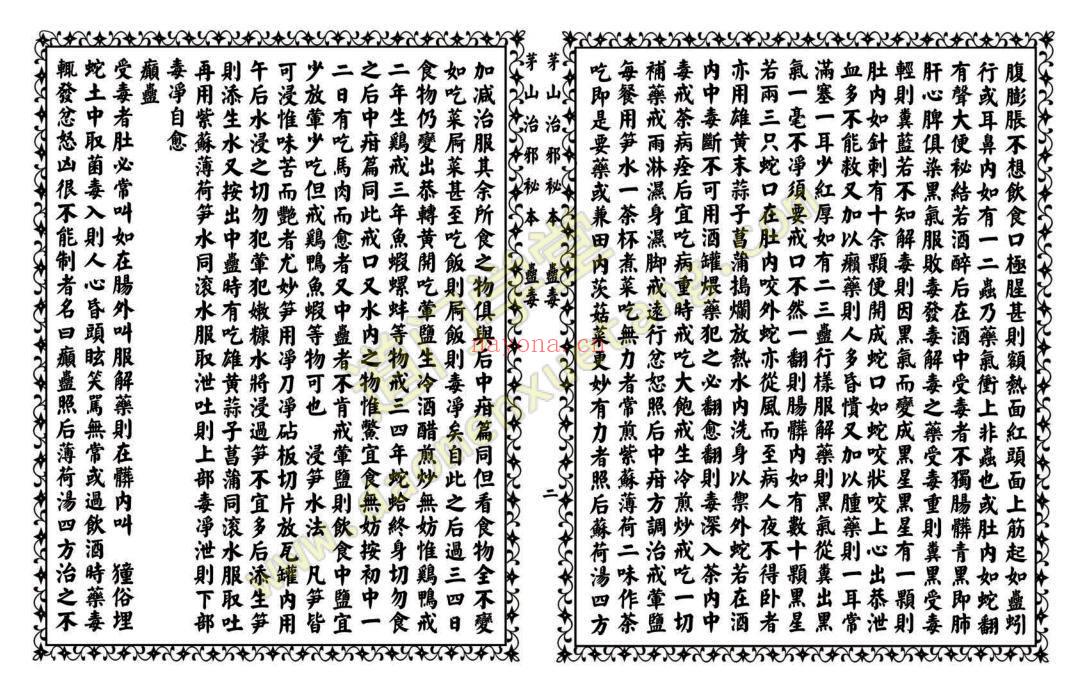 腹膨脹不想飲食口極腥甚則額熱面紅頭面上筋起如蠱蚓
行或耳鼻內如有一二蟲乃藥氣衝上非蟲也或肚內如蛇翻
有聲大便秘結若酒醉后在酒中受毒者不獨腸髒青黑即肺
肝心脾俱染黑氣服敗毒發毒解毒之藥受毒重則糞黑受毒
輕則糞藍若不知解毒則因黑氣而變成黑星黑星有一顆則
肚內如針刺有十余顆便開成蛇口如蛇咬狀咬上心出恭泄
血多不能救又加以癩藥則人多昏憒又加以腫藥則一耳常
滿塞一耳少紅厚如有二三蠱行樣服解藥則黑氣從糞出黑
氣一毫不凈須要戒口不然一翻則腸髒內如有數十顆黑星
若兩三只蛇口在肚內咬外蛇亦從風而至病人夜不得臥者
亦用雄黃末蒜子菖蒲搗爛放熱水內洗身以禦外蛇若在酒
內中毒斷不可用酒罐煨藥犯之必翻愈翻則毒深入茶內中
毒戒茶病痊后宜吃病重時戒吃大飽戒生冷煎炒戒吃一切
補藥戒雨淋濕身濕脚戒遠行忿恕照后中疳方調治戒葷鹽
每餐用笋水一茶杯煮菜吃無力者常煎紫蘇薄荷二味作茶
吃即是要藥或兼田內茨菇菜更妙有力者照后蘇荷湯四方
茅山治邪秘本 蠱毒
二
茅山治邪秘本 蠱毒
加减治服其余所食之物俱與后中疳篇同但看食物全不變
如吃菜屙菜甚至吃飯則屙飯則毒凈矣自此之后過三四日
食物仍變出恭轉黃開吃葷鹽生冷酒醋煎炒無妨惟鷄鴨戒
二年生鷄戒三年魚蝦螺蚌等物戒三四年蛇蛤終身切勿食
之后中疳篇同此戒口又水內之物惟鱉宜食無妨按初中一
二日有吃馬肉而愈者又中蠱者不肯戒葷鹽則飲食中鹽宜
少放葷少吃但戒鷄鴨魚蝦等物可也 浸笋水法 凡笋皆
可浸惟味苦而艷者尤妙笋用凈刀凈砧板切片放瓦罐內用
午后水浸之切勿犯葷犯嫩糠水將浸過笋不宜多后添生笋
則添生水又按出中蠱時有吃雄黃蒜子菖蒲同滾水服取吐
再用紫蘇薄荷笋水同滾水服取泄吐則上部毒凈泄則下部
毒凈自愈
癲蠱
受毒者肚必常叫如在腸外叫服解藥則在髒內叫 獞俗埋
蛇土中取菌毒入則人心昏頭眩笑駡無常或過飲酒時藥毒
輒發忿怒凶很不能制者名曰癲蠱照后薄荷湯四方治之不
道门学堂
www.daomenxuetang.com
nayona.cn